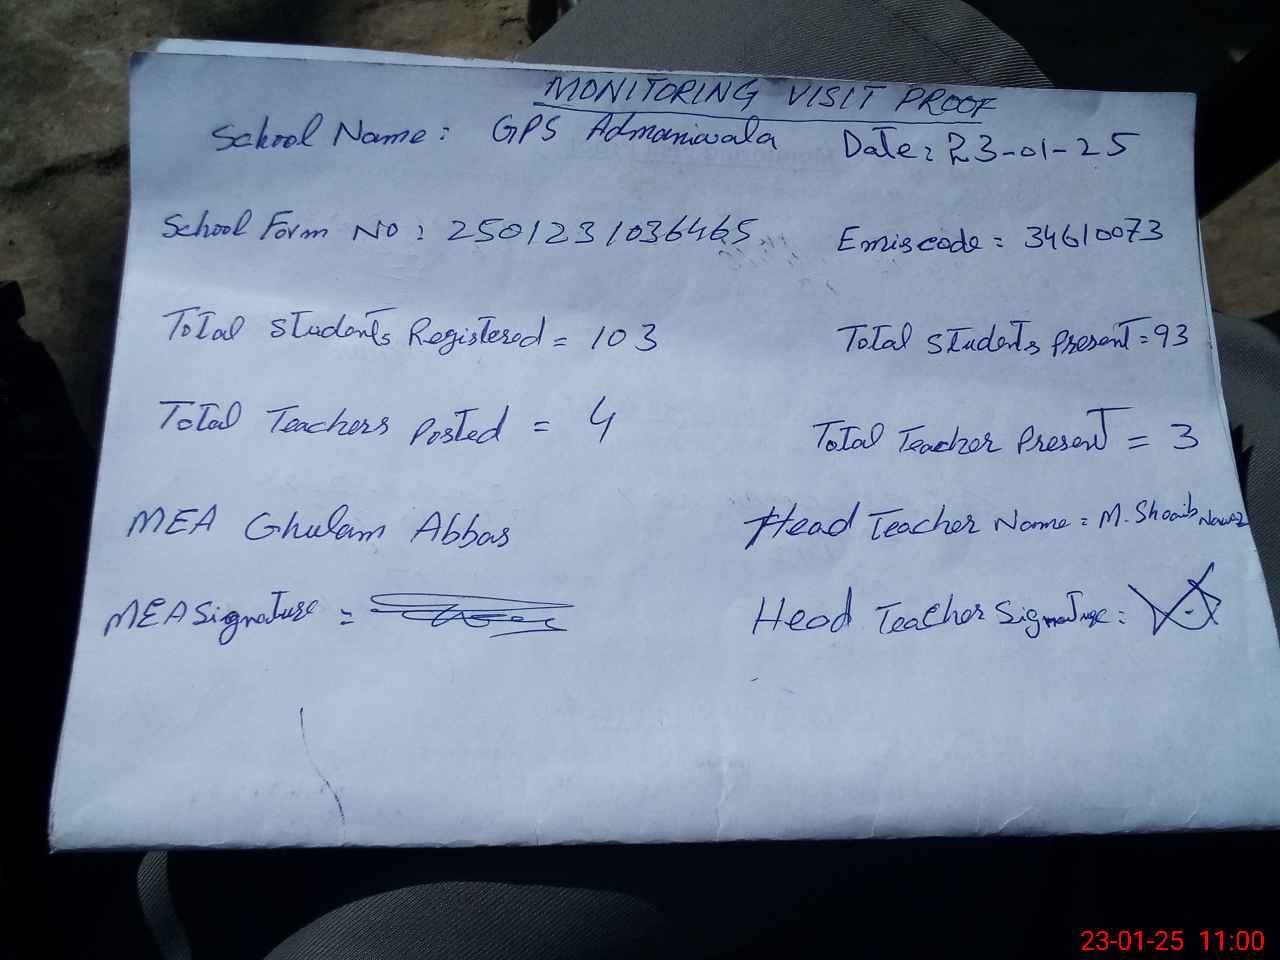 MONITORING VISIT PROOF
School Name: GPS Admaniwala Date: 23-01-25
School Form No: 2501231036465 Emiscode = 34610073
Total Students Registered = 103 Total Students Present = 93
Total Teachers Posted = 4 Total Teacher Present = 3
MEA Ghulam Abbas Head Teacher Name = M. Shoaib Nawaz
MEA Signature = Head Teacher Signature:
23-01-25 11:00